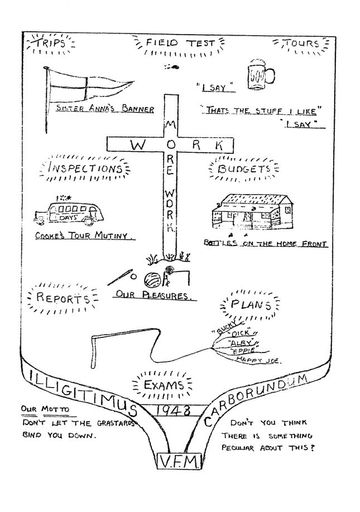 TRIPS
FIELD TEST
TOURS
"I SAY"
SISTER ANNA'S BANNER
"THATS THE STUFF I LIKE"
"I SAY"
MORE WORK
WORK
INSPECTIONS
BUDGETS
DAYS
COOKE'S TOUR MUTINY.
BOTTLES ON THE HOME FRONT
REPORTS
OUR PLEASURES.
PLANS
"BUCKY"
"DICK"
"ALBY"
"EPPIE"
HAPPY JOE.
EXAMS
ILLIGITIMUS
1948
CARBORUNDUM
OUR MOTTO
DON'T LET THE GRASTARDS
BIND YOU DOWN.
DON'T YOU THINK
THERE IS SOMETHING
PECULIAR ABOUT THIS?
V.F.M